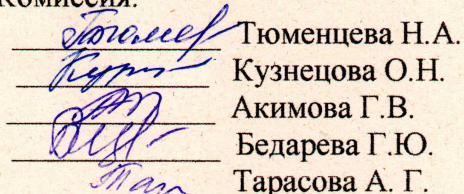 Комиссия:
Тюменцева Н.А.
Кузнецова О.Н.
Акимова Г.В.
Бедарева Г.Ю.
Тарасова А. Г.